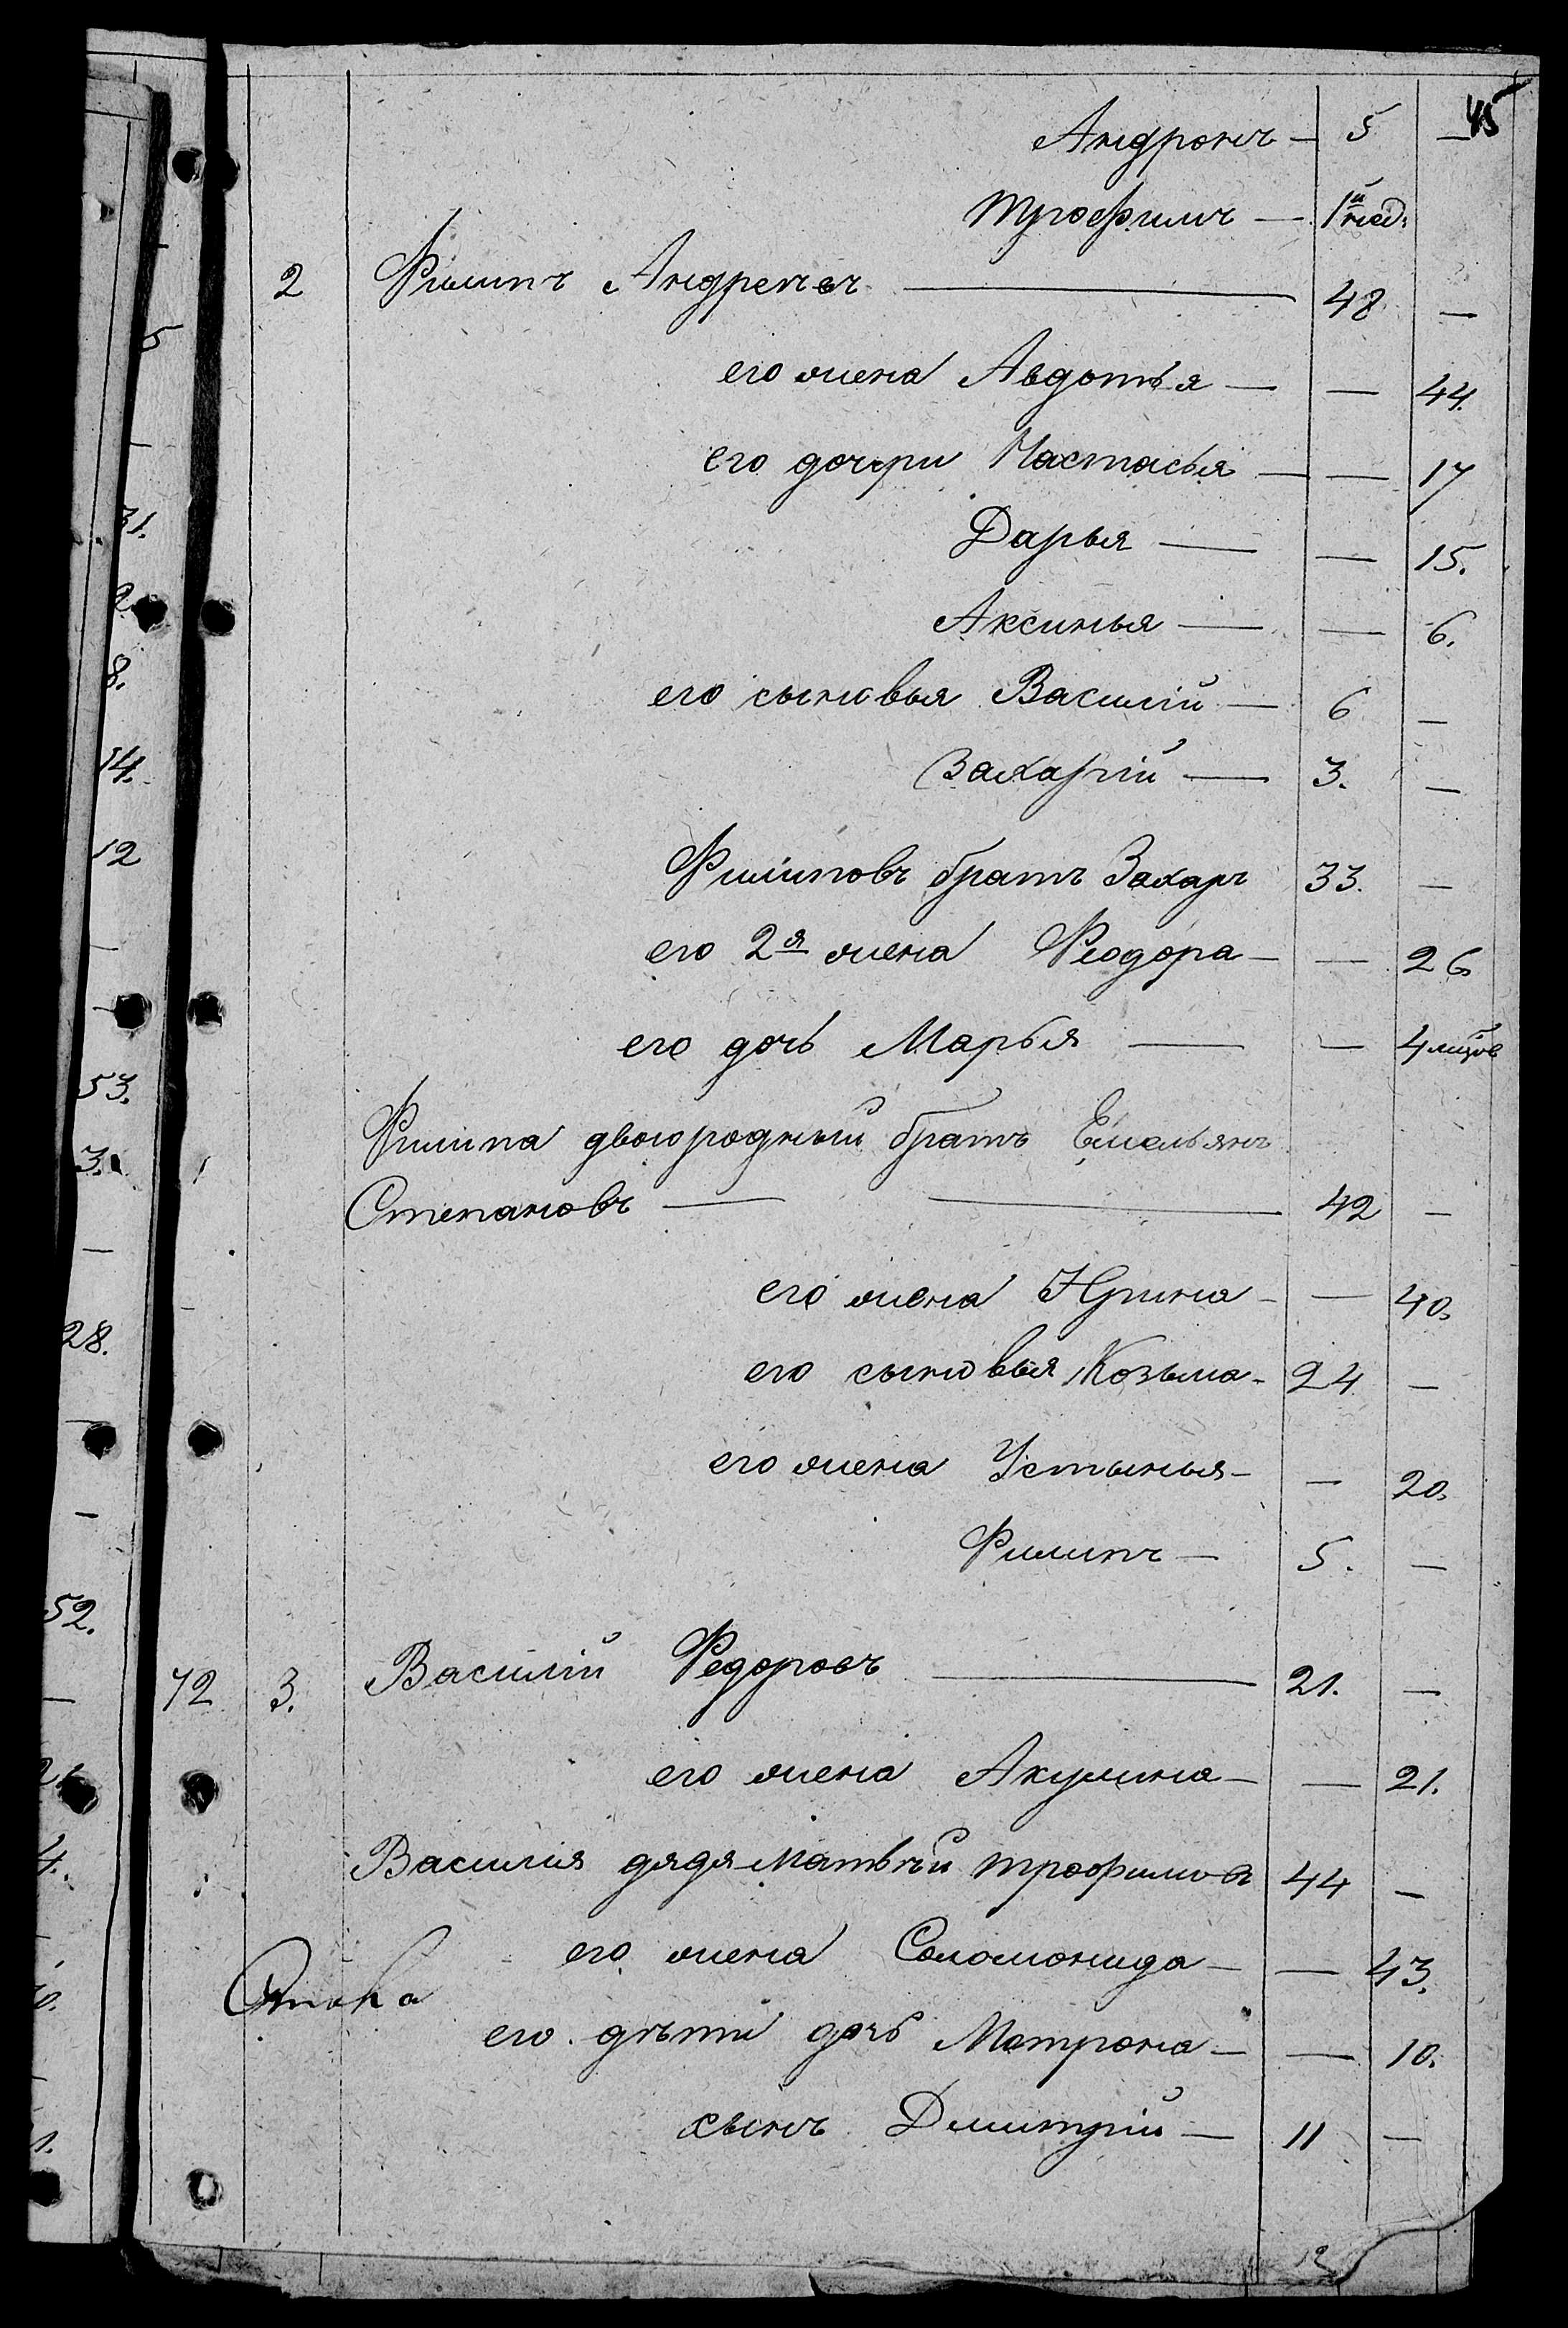 45
Андронъ — 5 —
Трофимъ — 1й нед:
2 Филипъ Андреевъ — 48 —
его жена Авдотья — — 44.
его дочери Настасья — — 17
Дарья — — 15.
Аксинья — — 6.
его сыновья Василій — 6 —
Захарій — 3. —
Филиповъ братъ Захаръ 33. —
его 2я жена Феодора — — 26
его дочь Марья — — 4
Филипа двоюродный братъ Емельянъ
Степановъ — 42 —
его жена Ирина — — 40.
его сыновья Козьма — 24 —
его жена Устинья — — 20.
Филипъ — 5. —
72 3. Василій Федоровъ — 21. —
его жена Акулина — — 21.
Василія дядя Матвѣй Трофимовъ 44 —
его жена Соломонида — — 43.
его дѣти дочь Матрона — — 10.
сынъ Дмитрій — 11 —
5
31.
8.
14.
12
53.
3.
28.
52.
4.